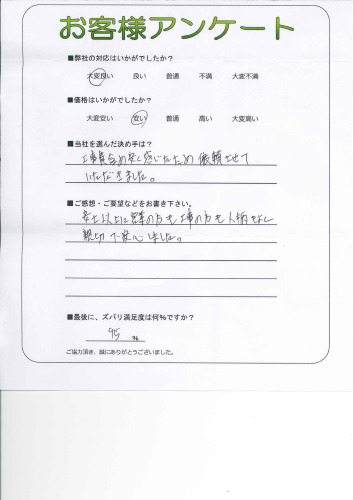 お客様アンケート
■弊社の対応はいかがでしたか?
大変良い 良い 普通 不満 大変不満
■価格はいかがでしたか?
大変安い 安い 普通 高い 大変高い
■当社を選んだ決め手は?
工事費含め安く感じたため依頼させて
いただきました。
■ご感想・ご要望などをお書き下さい。
以上に営業の方も工事の方も人柄もよく
親切で安心しました。
■最後に、ズバリ満足度は何%ですか?
95 %
ご協力頂き、誠にありがとうございました。